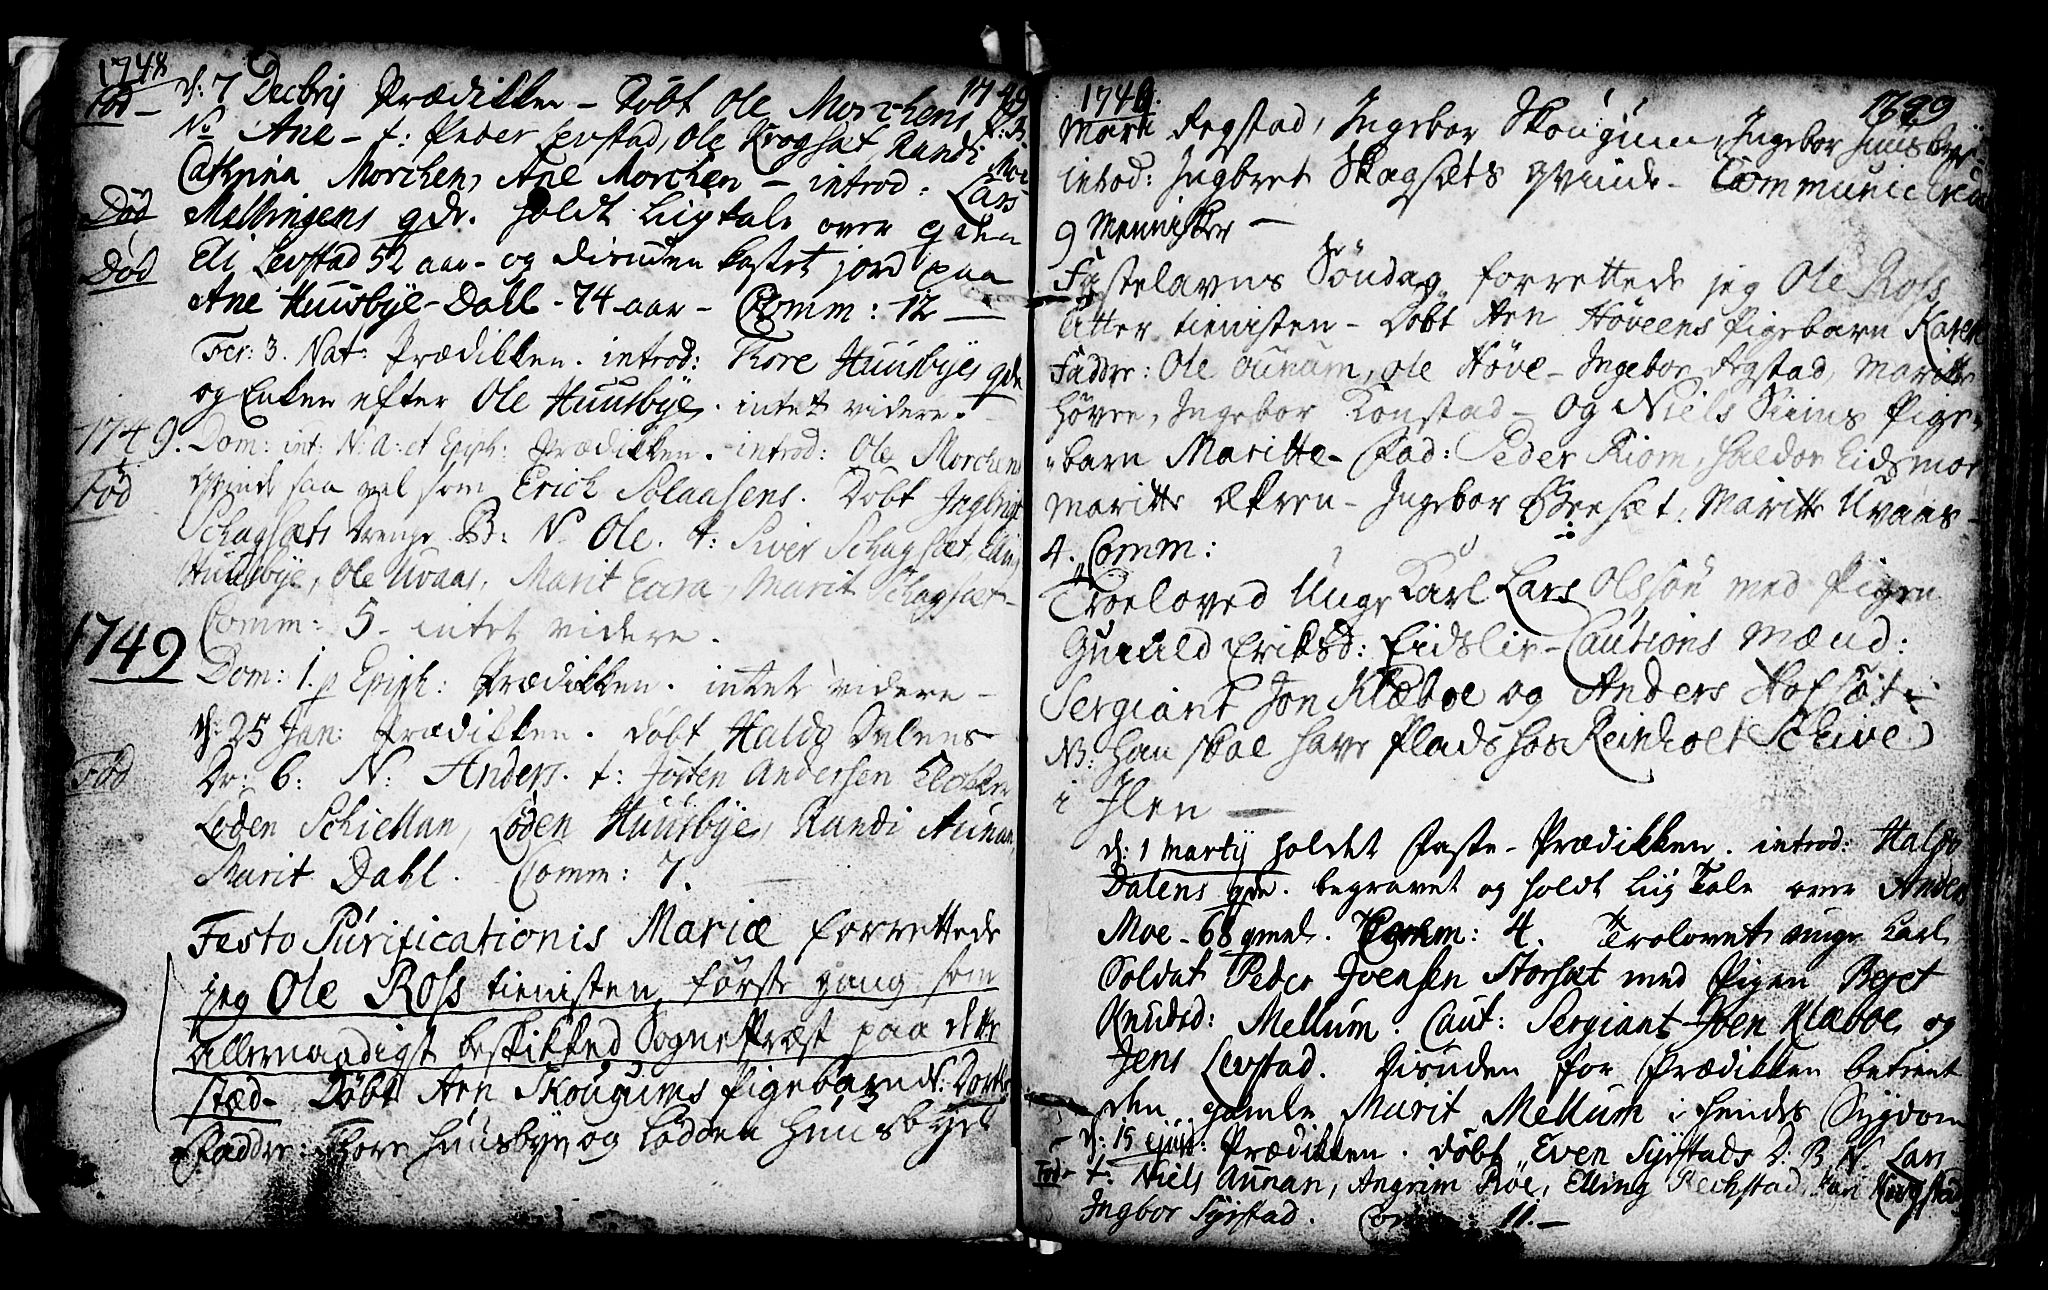 1748 1749
Fød - d: 7 Decbris Prædikken - Døbt Ole Morchens P: B.
N. Ane - t: Peder Levstad, Ole Krogsæt, Randi Moe
Cathrina Morchen, Ane Morchen - introd: Lars
Død Mellingens qde. holdt Liigtale over
Død Eli Levstad 52 aar - og desuden kastet jord paa
Ane Huusbye-Dall - 74 aar - Comm: 12 -
Fer: 3. Nat: Prædikken. introd: Tore Huusbyes qde
og Enken efter Ole Huusbye. intet videre.
1749. Dom: int: N. A: et Epiph: Prædikken. - introd: Ole Morchens
Fød qvinde saa vel som Erich Solaasens. Døbt Ingebrigt
Schagsæts Drenge B: N. Ole. t: Siver Schagsæt,
Huusbye, Ole Uvaas, Marit Ecra, Marit Schagsæt -
Comm: 5 - intet videre.
1749
Dom: 1. p Epiph: Prædikken. intet videre -
d: 25 Jan: Prædikken. døbt Haldo Dalens
Fød Dr: B: N: Anders. t: Josten Andersen Klokker
Loden Schiellan, Loden Huusbye, Randi Aunan,
Marit Dahl. Comm: 7.
Festo Purificationis Mariæ forrettede
jeg Ole Ross tienisten første gang som
allernaadigst beskikked SognePræst paa dette
stæd - Døbt Arn Skougums Pigebarn
Faddre: Thore Huusbye og Lodden Huusbye
1749. 1749
Marit Regstad, Ingebor Skougum, Ingebor Huusbye
introd: Ingbret Skagsæts qvinde - Communicerede
9 Mennisker -
Fastelavns Søndag forrettede jeg Ole Ross
atter tienisten - Døbt Arn Høveens Pigebarn Karen
Faddre: Ole Ounum, Ole Høve - Ingebor Regstad, Maritte
Høven, Ingebor Konstad - og Niels Siuns Pige-
barn Maritte - Fad: Peder Riom, Haldor Eidsmoe
Maritte Ækren - Ingebor Øfersæt, Maritte Uvaas -
4. Comm:
Troeloved Unge Karl Lars Olssøn med Pigen
Gunild Eriksd: Eidslie - Cautions Mænd:
Sergiant Jon Klæboe og Anders Hofsæt -
NB: han skal have Plads hos Reinholt Schive
i Ilen -
d: 1 Martij holdet Faste-Prædikken. introd: Haldo
Dalens qde. begravet og holdt Liig Tale over Anders
Moe - 68 gmel. Comm: 4. Trolovet unge Karl
Soldat Peder Joensen Storsæt med Pigen Beret
Knudsd: Mellum. Caut: Sergiant Joen Klæboe og
Jens Levstad. Desuden for Prædikken betient
den gamle Marit Mellum i hendes Sygdom
d: 15 ejusd: Prædikken. døbt Even Syrstads D: B N. Lars
Fød - t: Niels Aunan, Angrim Røe, Elling Rechstad, Kari
Ingbor Syrstad. Comm: 11. -